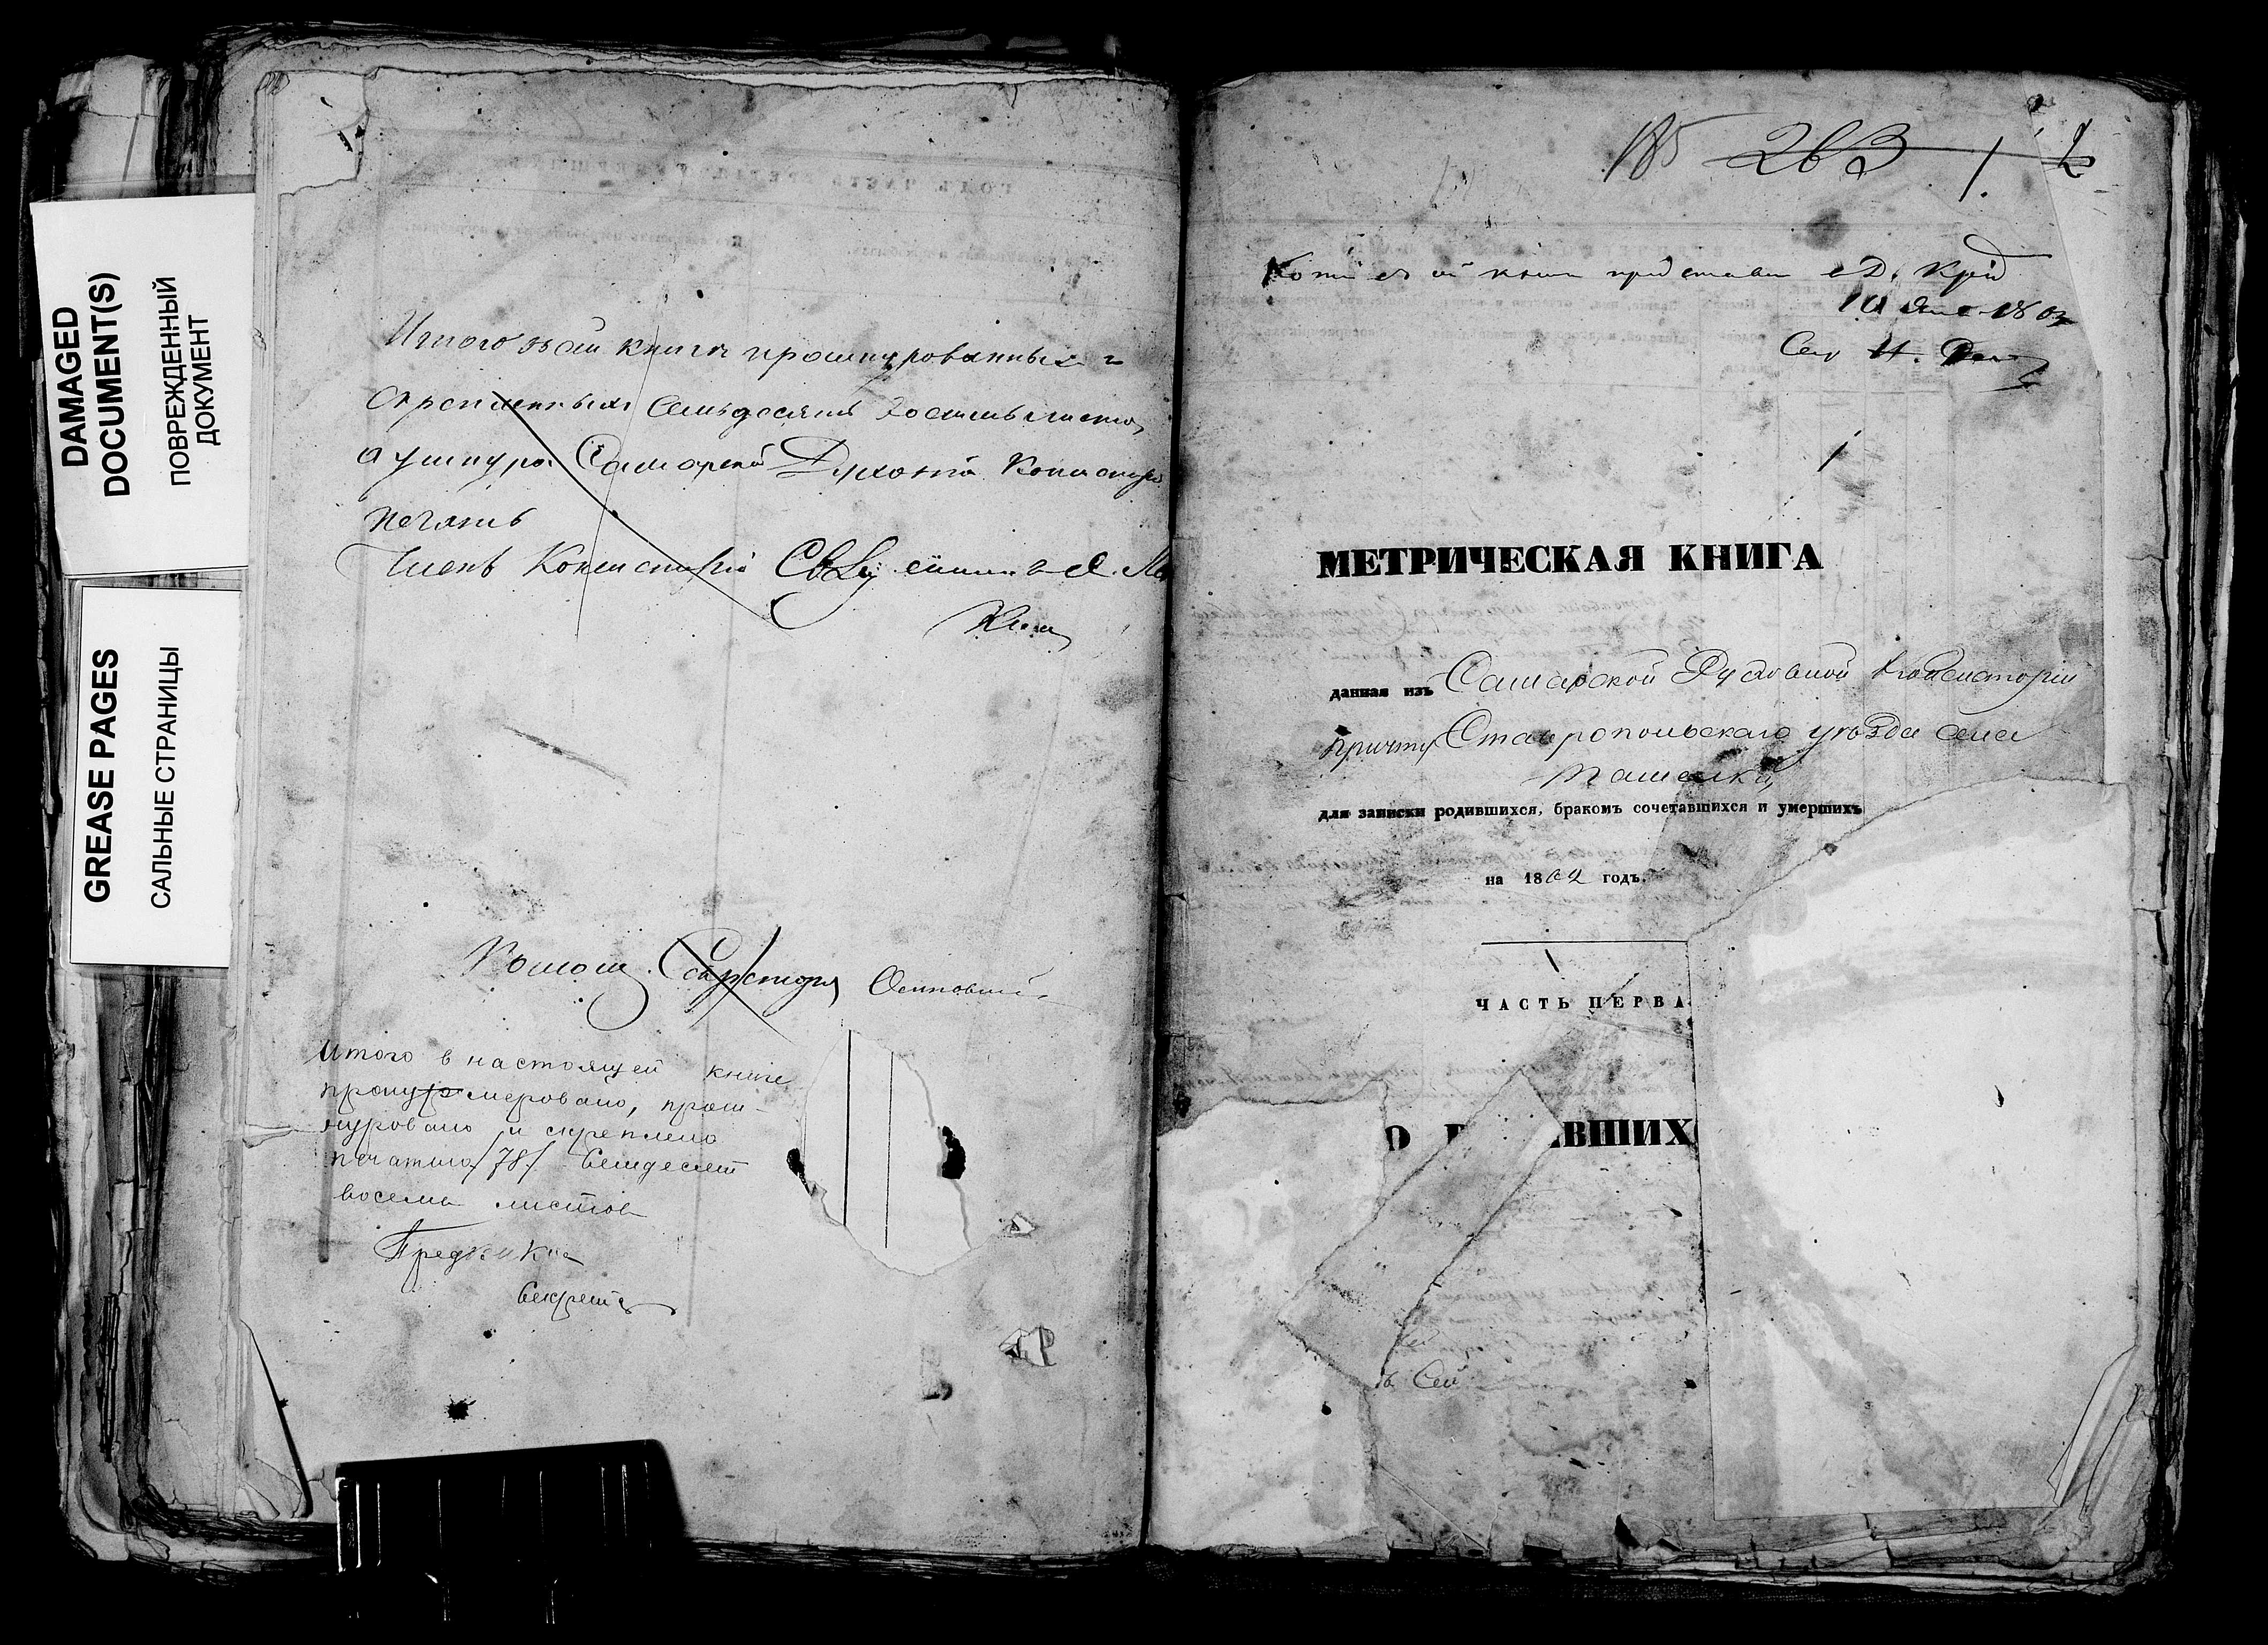 DAMAGED
DOCUMENT(S)
ПОВРЕЖДЕННЫЙ
ДОКУМЕНТ
GREASE PAGES
САЛЬНЫЕ СТРАНИЦЫ
Итого въ сей книгѣ прошнурованныхъ и
скрепленныхъ Семьдесятъ восемь листовъ,
а у шнура Самарской Духовной Консисторіи
печать
Членъ Консисторіи Священникъ
Помощ. Секретаря Осиповскій
Итого в настоящей книге
пронумеровано, прош-
нуровано и скреплено
печатью /78/ Семдесят
восемь листов
Секретарь
185 263 1. 2
Копія съ сей книги представлена
10 Янв. 1863
1
МЕТРИЧЕСКАЯ КНИГА
данная изъ Самарской Духовной Консисторіи
причту Ставропольскаго уѣзда села
Ташелки,
для записки родившихся, бракомъ сочетавшихся и умершихъ
на 1862 годъ.
ЧАСТЬ ПЕРВА
О ВШИХ
ъ Сей